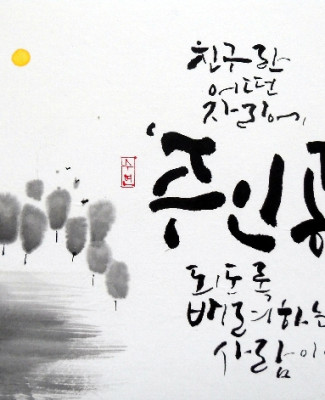 친구란
어떤
자리에서
'주인공
되도록
배려하는
사람이
수연